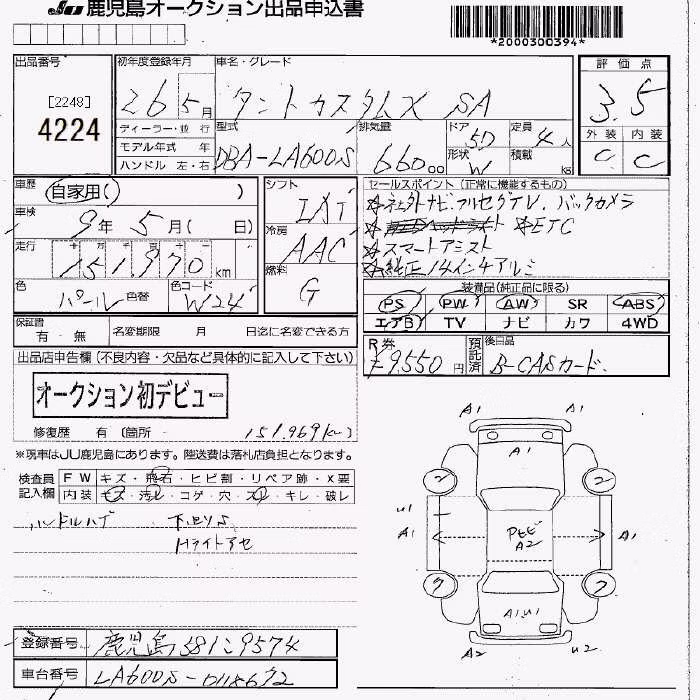 JU 鹿児島オークション出品申込書
*2000300394*
出品番号
[2248]
4224
初年度登録年月
26 5月
車名・グレード
タントカスタムX SA
評価点
3.5
外装 内装
C C
ディーラー・並行
モデル年式 年
ハンドル 左・右
型式
DBA-LA600S
排気量
660 00
ドア 5D
形状 W
定員 4人
積載 kg
車歴
自家用( )
車検
9年 5月( 日)
走行
151970 km
色
パール 色替
色コード
W24
シフト
IAT
冷房
AAC
燃料
G
セールスポイント (正常に機能するもの)
☆社外ナビ.フルセグテレ.バックカメラ
☆ETC
☆スマートアシスト
☆純正14インチアルミ
装備品(純正品に限る)
PS PW AW SR ABS
エアB TV ナビ カワ 4WD
保証書
有・無
名変期限 月 日迄に名変できる方
R券
¥9,550円
預託済
後日品
B-CASカード.
出品店申告欄 (不良内容・欠品など具体的に記入して下さい)
オークション初デビュー
修復歴 有 〔箇所 151.969km
※現車はJU鹿児島にあります。陸送費は落札店負担となります。
検査員記入欄
FW キズ・飛石・ヒビ割・リペア跡・X要
内装 キズ・汚レ・コゲ・穴・スレ・キレ・破レ
ハンドルハゲ 下回りS
Hライトアセ
A1 A1
A1
2 2
U1
A1 A1
A2
A1U1
A2 U2
登録番号 鹿児島581に9574
車台番号